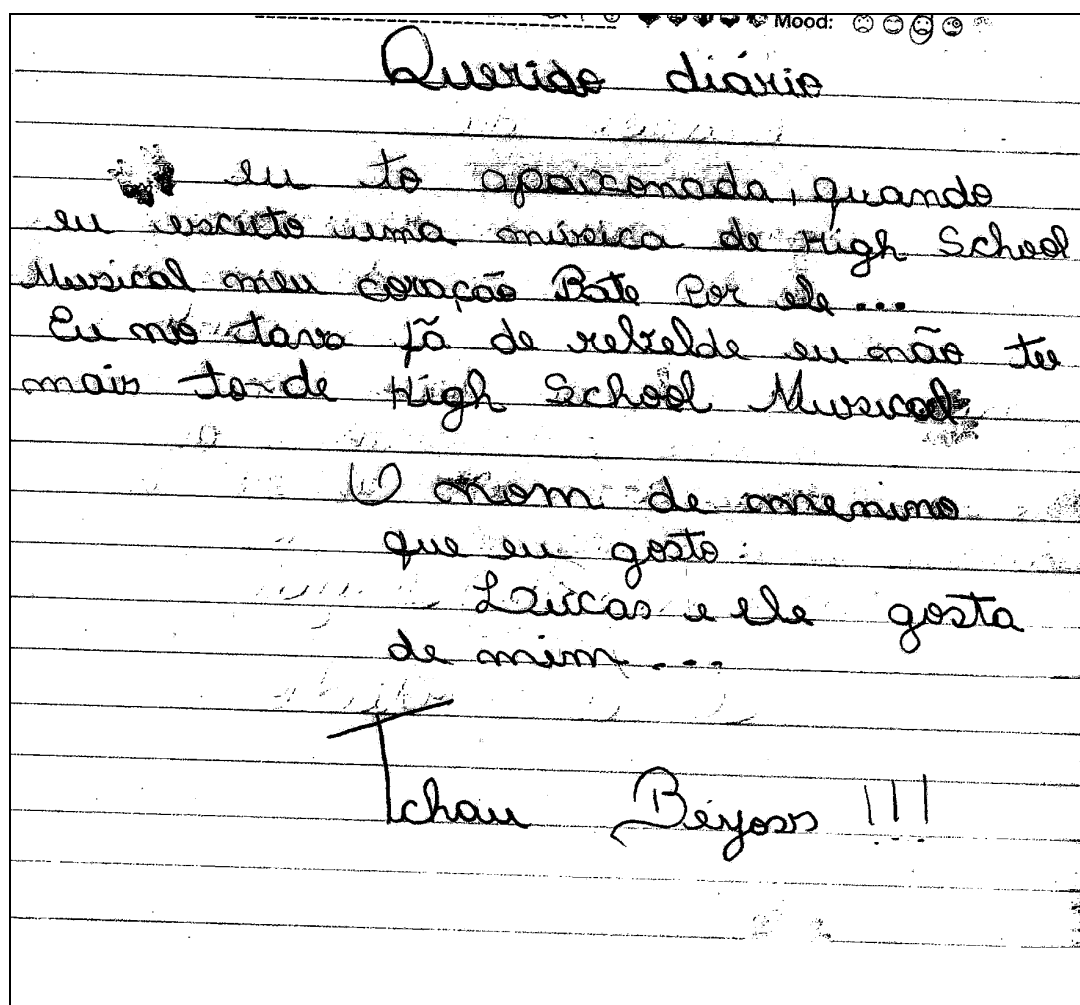 Mood:
Querido diário
eu to apaixonada, quando
eu escuto uma música de High School
Musical meu coração Bate Por ele...
Eu no tava fã de rebelde eu não to
mais to de High School Musical
O nom de menino
que eu gosto:
Luccas e ele gosta
de mim...
Tchau Beyoss !!!